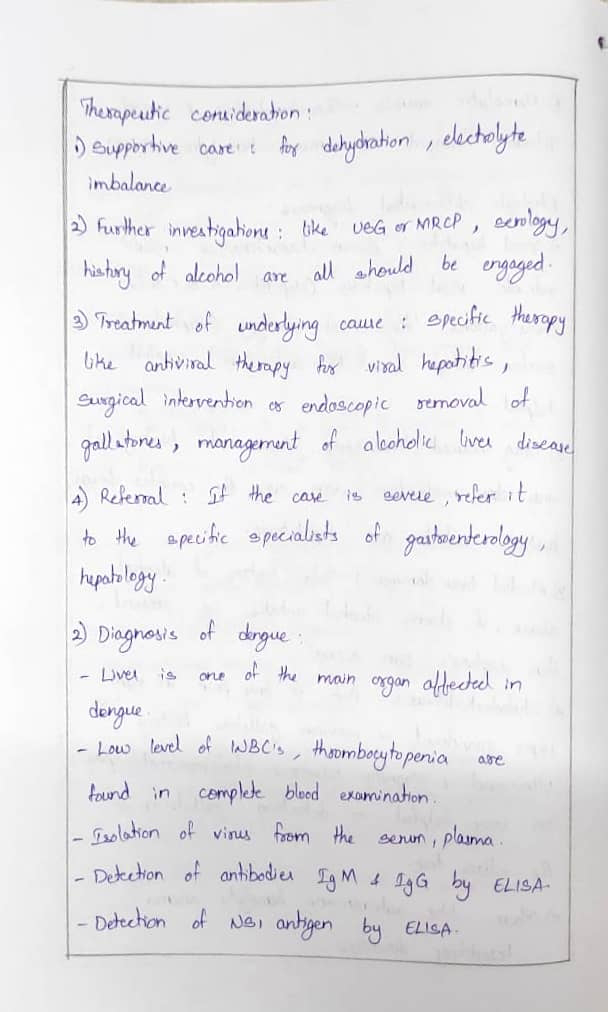 Therapeutic consideration :
1) Supportive care : for dehydration , electrolyte
imbalance
2) Further investigations : like USG or MRCP , serology,
history of alcohol are all should be engaged.
3) Treatment of underlying cause : specific therapy
like antiviral therapy for viral hepatitis ,
surgical intervention or endoscopic removal of
gallstones , management of alcoholic liver disease
4) Referral : If the case is severe , refer it
to the specific specialists of gastroenterology ,
hepatology .
2) Diagnosis of dengue :
- Liver is one of the main organ affected in
dengue .
- Low level of WBC's , thrombocytopenia are
found in complete blood examination .
- Isolation of virus from the serum , plasma .
- Detection of antibodies IgM & IgG by ELISA.
- Detection of NS1 antigen by ELISA .